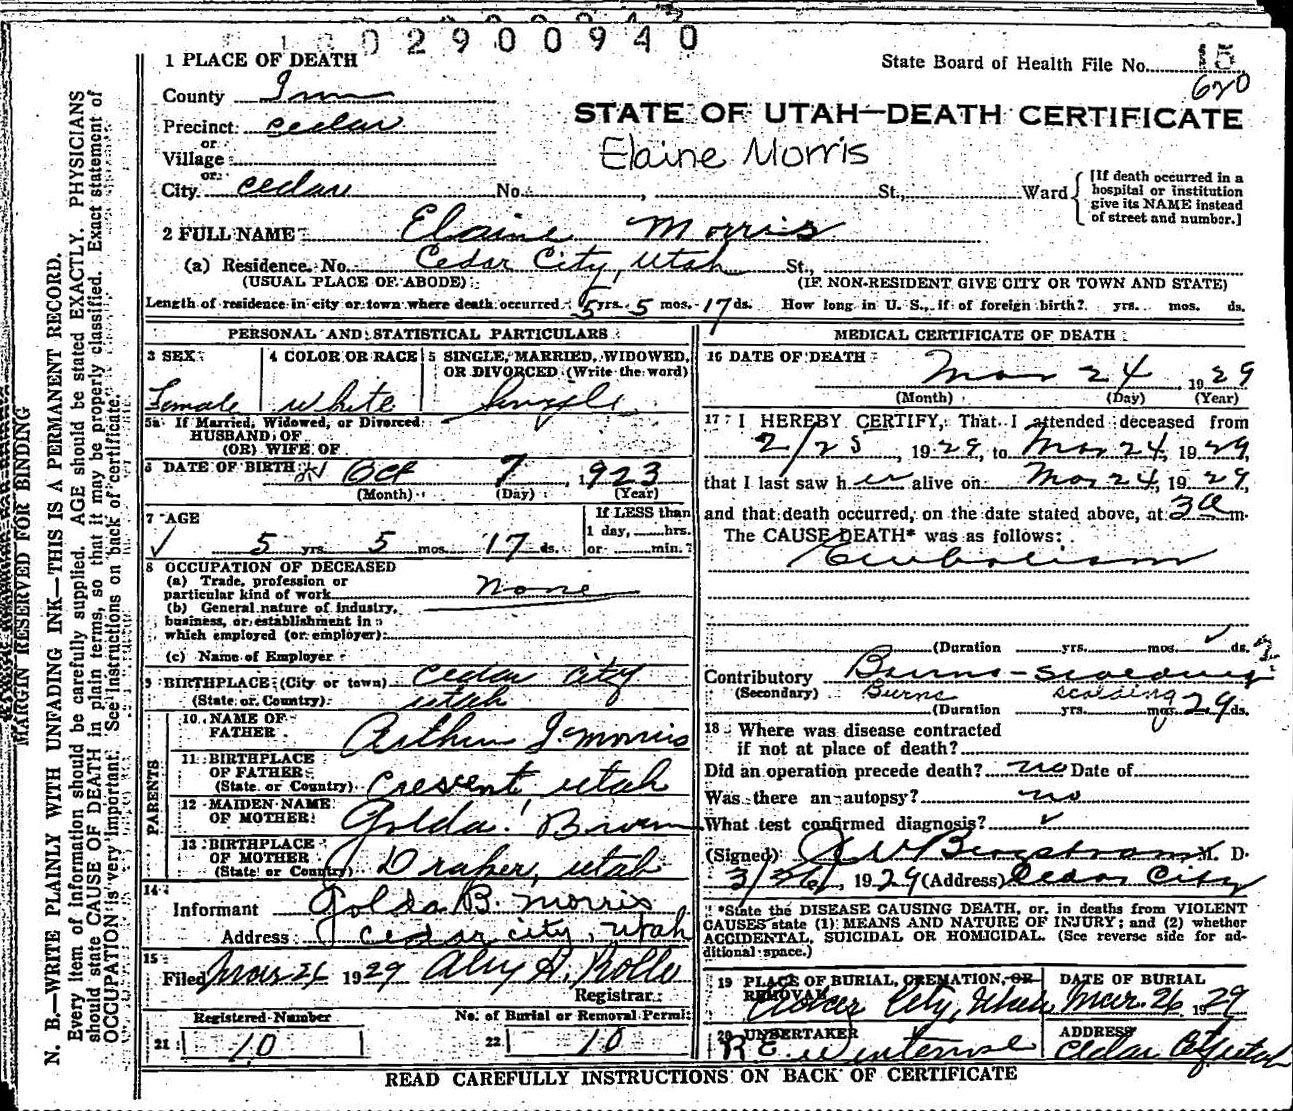 029 00940
1 PLACE OF DEATH
State Board of Health File No. 15
620
County Iron
STATE OF UTAH—DEATH CERTIFICATE
Precinct cedar
Elaine Morris
or
Village
or
City cedar No. , St., Ward
[If death occurred in a hospital or institution give its NAME instead of street and number.]
2 FULL NAME Elaine Morris
(a) Residence. No. Cedar City, Utah St.,
(USUAL PLACE OF ABODE) (IF NON-RESIDENT GIVE CITY OR TOWN AND STATE)
Length of residence in city or town where death occurred 5 yrs. 5 mos. 17 ds. How long in U. S., if of foreign birth? yrs. mos. ds.
PERSONAL AND STATISTICAL PARTICULARS
3 SEX
Female
4 COLOR OR RACE
white
5 SINGLE, MARRIED, WIDOWED, OR DIVORCED (Write the word)
Single
5a If Married, Widowed, or Divorced
HUSBAND OF
(OR) WIFE OF
6 DATE OF BIRTH Oct 7, 1923
(Month) (Day) (Year)
7 AGE
5 yrs. 5 mos. 17 ds.
If LESS than
1 day, hrs.
or min.?
8 OCCUPATION OF DECEASED
(a) Trade, profession or
particular kind of work None
(b) General nature of industry,
business, or establishment in
which employed (or employer)
(c) Name of Employer
9 BIRTHPLACE (City or town) Cedar City
(State or Country) Utah
PARENTS
10 NAME OF
FATHER Arthur J. Morris
11 BIRTHPLACE
OF FATHER
(State or Country) Crescent Utah
12 MAIDEN NAME
OF MOTHER Golda Brown
13 BIRTHPLACE
OF MOTHER
(State or Country) Draper, Utah
14
Informant Golda B. Morris
Address Cedar City, Utah
15
Filed Mar 26 1929
Registrar
Registered Number
21 10
No. of Burial or Removal Permit
22 10
MEDICAL CERTIFICATE OF DEATH
16 DATE OF DEATH
Mar 24 1929
(Month) (Day) (Year)
17 I HEREBY CERTIFY, That I attended deceased from
2/25, 1929, to Mar 24, 1929,
that I last saw her alive on Mar 24, 1929,
and that death occurred, on the date stated above, at 3a m.
The CAUSE DEATH* was as follows:
Embolism
(Duration yrs. mos. ds.
Contributory Burns-scalding
(Secondary) Burns scalding
(Duration yrs. mos. 29 ds.
18 Where was disease contracted
if not at place of death?
Did an operation precede death? no Date of
Was there an autopsy? no
What test confirmed diagnosis?
(Signed) Bergstrom M. D.
3/26, 1929 (Address) Cedar City
*State the DISEASE CAUSING DEATH, or, in deaths from VIOLENT
CAUSES state (1) MEANS AND NATURE OF INJURY; and (2) whether
ACCIDENTAL, SUICIDAL OR HOMICIDAL. (See reverse side for ad-
ditional space.)
19 PLACE OF BURIAL, CREMATION, OR
REMOVAL
City, Utah
DATE OF BURIAL
Mar. 26 1929
20 UNDERTAKER
ADDRESS
Cedar City Utah
READ CAREFULLY INSTRUCTIONS ON BACK OF CERTIFICATE
MARGIN RESERVED FOR BINDING
N. B.—WRITE PLAINLY WITH UNFADING INK—THIS IS A PERMANENT RECORD.
Every item of information should be carefully supplied. AGE should be stated EXACTLY. PHYSICIANS
should state CAUSE OF DEATH in plain terms, so that it may be properly classified. Exact statement of
OCCUPATION is very important. See instructions on back of certificate.